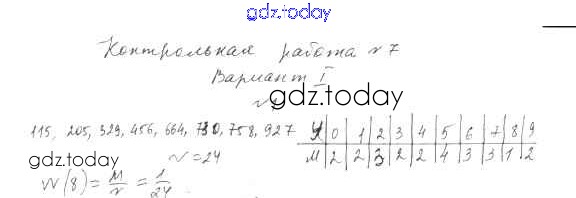 gdz.today
Контрольная работа №7
Вариант I
№1
gdz.today
115, 205, 329, 456, 664, 730, 758, 927
У 0 1 2 3 4 5 6 7 8 9
М 2 2 3 2 2 4 3 3 1 2
gdz.today
N=24
W(8)=M/N=1/24